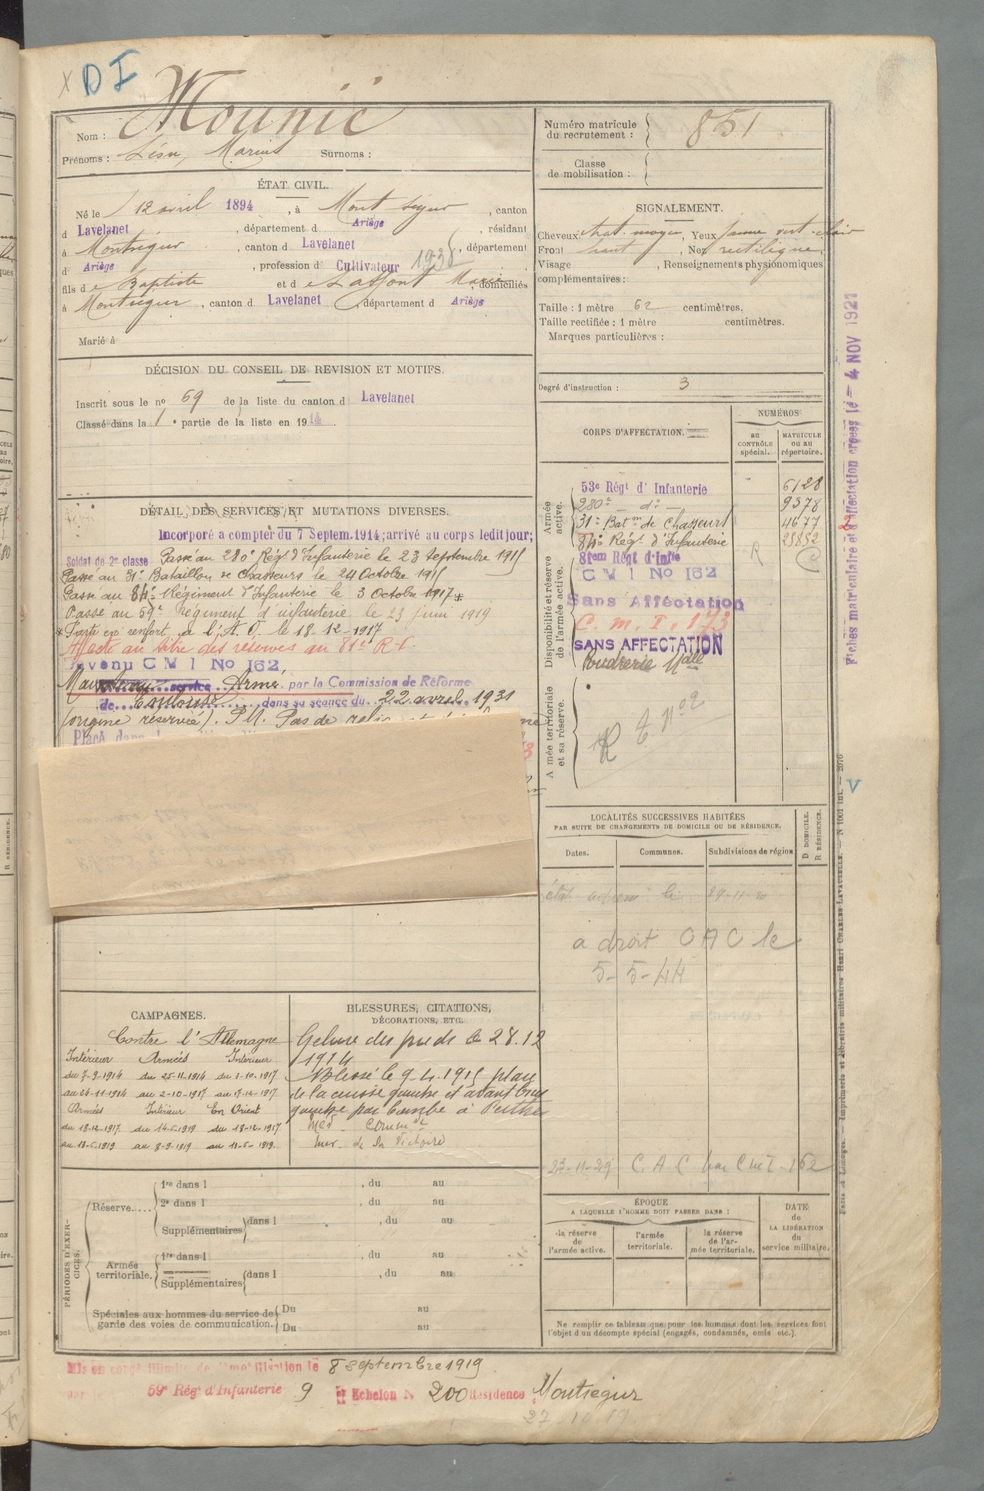 D I
Nom : Mounié
Prénoms : Léon, Marius Surnoms :
Numéro matricule du recrutement : 851
Classe de mobilisation :
ÉTAT CIVIL.
Né le 12 avril 1894, à Mont ségur, canton
d Lavelanet, département d Ariège, résidant
à Montségur, canton d Lavelanet, département
d Ariège, profession d Cultivateur 1938
fils de Baptiste et de Laffont Marie domiciliés
à Montségur, canton d Lavelanet département d Ariège
Marié à
SIGNALEMENT.
Cheveux chat. moyen, Yeux jaune vert clair
Front haut, Nez rectiligne
Visage , Renseignements physionomiques
complémentaires :
Taille : 1 mètre 62 centimètres.
Taille rectifiée : 1 mètre centimètres.
Marques particulières :
Degré d'instruction : 3
DÉCISION DU CONSEIL DE REVISION ET MOTIFS.
Inscrit sous le nº 69 de la liste du canton d Lavelanet
Classé dans la 1e partie de la liste en 1914.
DÉTAIL DES SERVICES ET MUTATIONS DIVERSES.
Incorporé a compter du 7 Septem. 1914; arrivé au corps ledit jour;
Soldat de 2e classe Passé au 280e Régt d'Infanterie le 23 Septembre 1915
Passé au 31e Bataillon de Chasseurs le 24 Octobre 1915
Passé au 84e Régiment d'Infanterie le 3 Octobre 1917 *
Passé au 59e Régiment d'infanterie le 23 juin 1919
* Parti en renfort à l'A. O. le 18-12-1917
Affecté au titre des réserves au 81e R.I.
Devenu C M I No 162,
Maintenu service Armé, par la Commission de Réforme
de Toulouse dans sa séance du 22 avril 1931
(origine réservée). P.N. Pas de
Placé dans
CORPS D'AFFECTATION.
NUMÉROS
au contrôle spécial.
MATRICULE ou au répertoire.
Armée active.
53e Régt d'Infanterie 6128
280e - do - 9378
31e Baton de Chasseurs 4677
84e Régt d'Infanterie 23852
Disponibilité et réserve de l'armée active.
81em Régt d'Infie R C
C M I No 162
Sans Affectation
C. M. I. 173
SANS AFFECTATION
Poudrerie Nale
Armée territoriale et sa réserve.
R
Fiches matriculaire et d'affectation créées le - 4 NOV 1921
LOCALITÉS SUCCESSIVES HABITÉES
PAR SUITE DE CHANGEMENTS DE DOMICILE OU DE RÉSIDENCE.
Dates. Communes. Subdivisions de région
D DOMICILE. R RÉSIDENCE.
a droit CAC le
5-5-44
23-11-29 C.A.C par CMI 162
CAMPAGNES.
Contre l'Allemagne
Intérieur Armées Intérieur
du 7-9-1914 du 25-11-1914 du 3-10-1917
au 24-11-1914 au 2-10-1917 au 17-12-1917
Armées Intérieur En Orient
du 18-12-1917 du 14-6-1919 du 18-12-1917
au 13-6-1919 au 8-9-1919 au 13-6-1919.
BLESSURES, CITATIONS, DÉCORATIONS, ETC.
Gelure des pieds le 28.12
1914
Blessé le 9-4-1915 plaie
de la cuisse gauche et avant bras
gauche par bombe à Perthes
Méd. Commve
de la Victoire
PÉRIODES D'EXERCICES.
Réserve..... 1re dans l , du au
2e dans l , du au
Supplémentaires dans l , du au
Armée territoriale. 1re dans l , du au
Supplémentaires dans l , du au
Spéciales aux hommes du service de garde des voies de communication. Du au
Du au
ÉPOQUE
A LAQUELLE L'HOMME DOIT PASSER DANS :
la réserve de l'armée active.
l'armée territoriale.
la réserve de l'armée territoriale.
DATE de LA LIBÉRATION du service militaire.
Ne remplir ce tableau que pour les hommes dont les services font
l'objet d'un décompte spécial (engagés, condamnés, omis etc.).
Mis en congé illimité de démobilisation le 8 septembre 1919
59e Régt d'Infanterie 9 Echelon N 200 Résidence Montségur